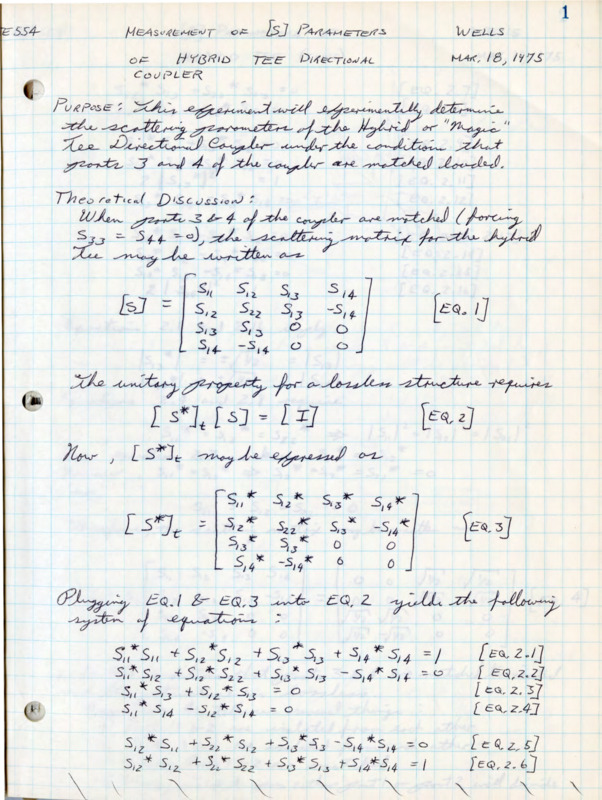 1
E554 MEASUREMENT OF [S] PARAMETERS WELLS
OF HYBRID TEE DIRECTIONAL MAR. 18, 1975
COUPLER
PURPOSE: This experiment will experimentally determine
the scattering parameters of the Hybrid or "Magic"
Tee Directional Coupler under the condition that
ports 3 and 4 of the coupler are matched loaded.
Theoretical Discussion:
When ports 3 & 4 of the coupler are matched (forcing
S33 = S44 = 0), the scattering matrix for the hybrid
tee may be written as
[S] = [ S11 S12 S13 S14 ] [EQ. 1]
S12 S22 S13 -S14
S13 S13 0 0
S14 -S14 0 0
The unitary property for a lossless structure requires
[S*]t [S] = [I] [EQ. 2]
Now, [S*]t may be expressed as
[S*]t = [ S11* S12* S13* S14* ] [EQ. 3]
S12* S22* S13* -S14*
S13* S13* 0 0
S14* -S14* 0 0
Plugging EQ.1 & EQ.3 into EQ.2 yields the following
system of equations:
S11*S11 + S12*S12 + S13*S13 + S14*S14 = 1 [EQ. 2.1]
S11*S12 + S12*S22 + S13*S13 - S14*S14 = 0 [EQ. 2.2]
S11*S13 + S12*S13 = 0 [EQ. 2.3]
S11*S14 - S12*S14 = 0 [EQ. 2.4]
S12*S11 + S22*S12 + S13*S13 - S14*S14 = 0 [EQ. 2.5]
S12*S12 + S22*S22 + S13*S13 + S14*S14 = 1 [EQ. 2.6]